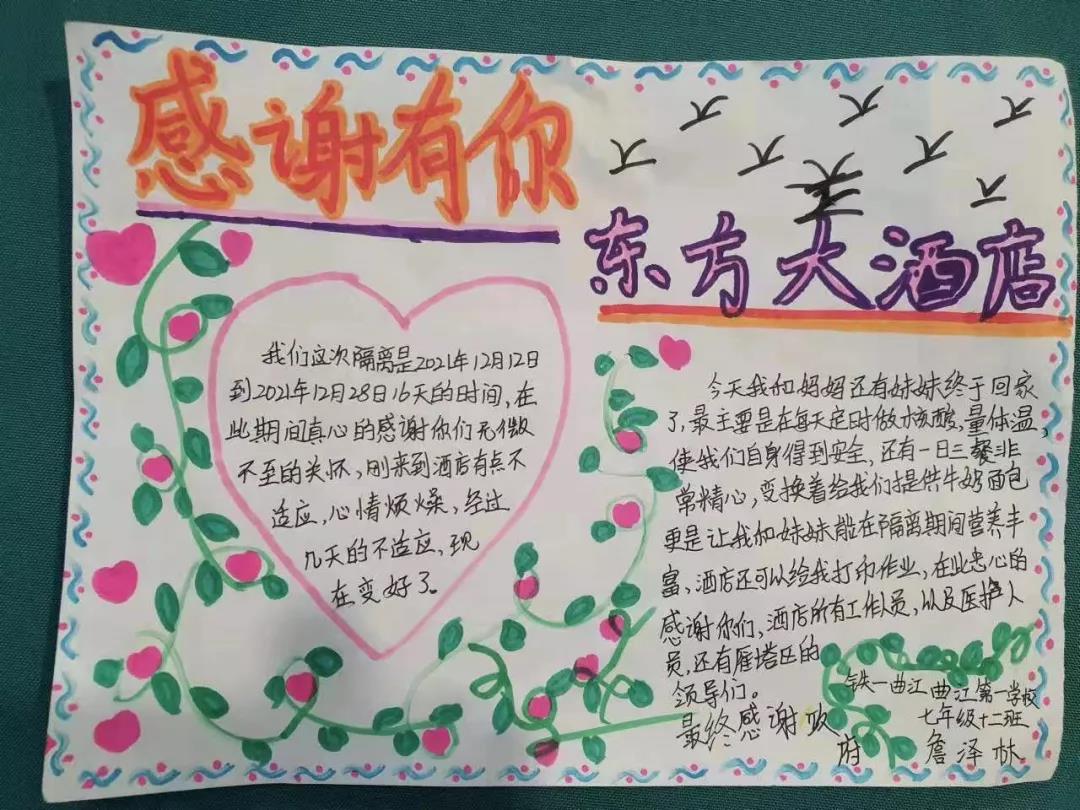 感谢有你
东方大酒店
我们这次隔离是2021年12月12日
到2021年12月28日16天的时间,在
此期间真心的感谢你们无微
不至的关怀,刚来到酒店有点不
适应,心情烦燥,经过
几天的不适应,现
在变好了。
今天我和妈妈还有妹妹终于回家
了,最主要是在每天定时做核酸,量体温,
使我们自身得到安全,还有一日三餐非
常精心,变换着给我们提供牛奶面包
更是让我和妹妹能在隔离期间营养丰
富,酒店还可以给我打印作业,在此忠心的
感谢你们,酒店所有工作人员,以及医护人
员,还有雁塔区的
领导们。
最终感谢政
府
铁一曲江曲江第一学校
七年级十二班
詹泽林